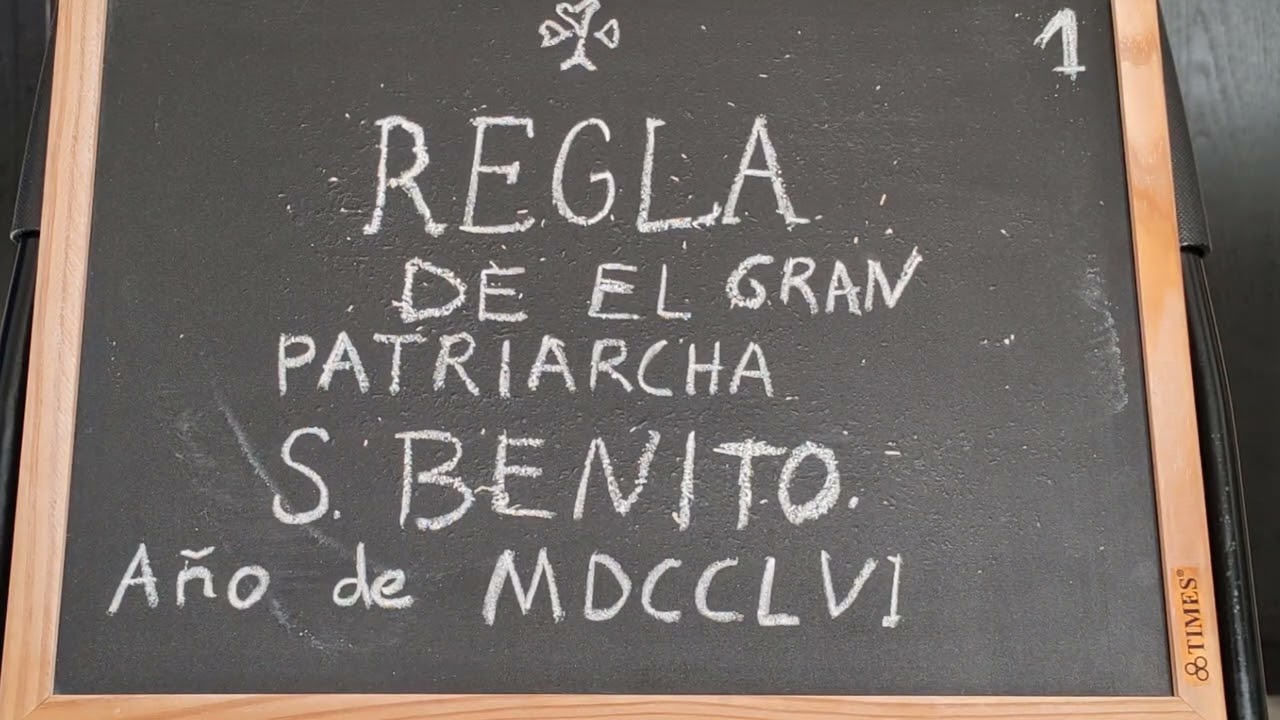 1
REGLA
DE EL GRAN
PATRIARCHA
S. BENITO.
Año de MDCCLVI
TIMES®